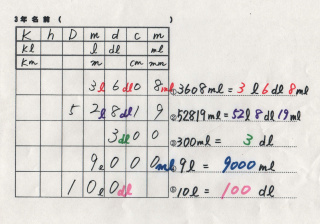 3年 名前 (            )
K h D m d c m
kl l dl ml
Km m cm mm
3l 6dl 0 8ml
5 2l 8dl 1 9
3dl 0 0
9l 0 0 0ml
1 0l 0dl
①3608ml = 3l 6dl 8ml
②52819ml = 52l 8dl 19ml
③300ml = 3 dl
④9l = 9000 ml
⑤10l = 100 dl